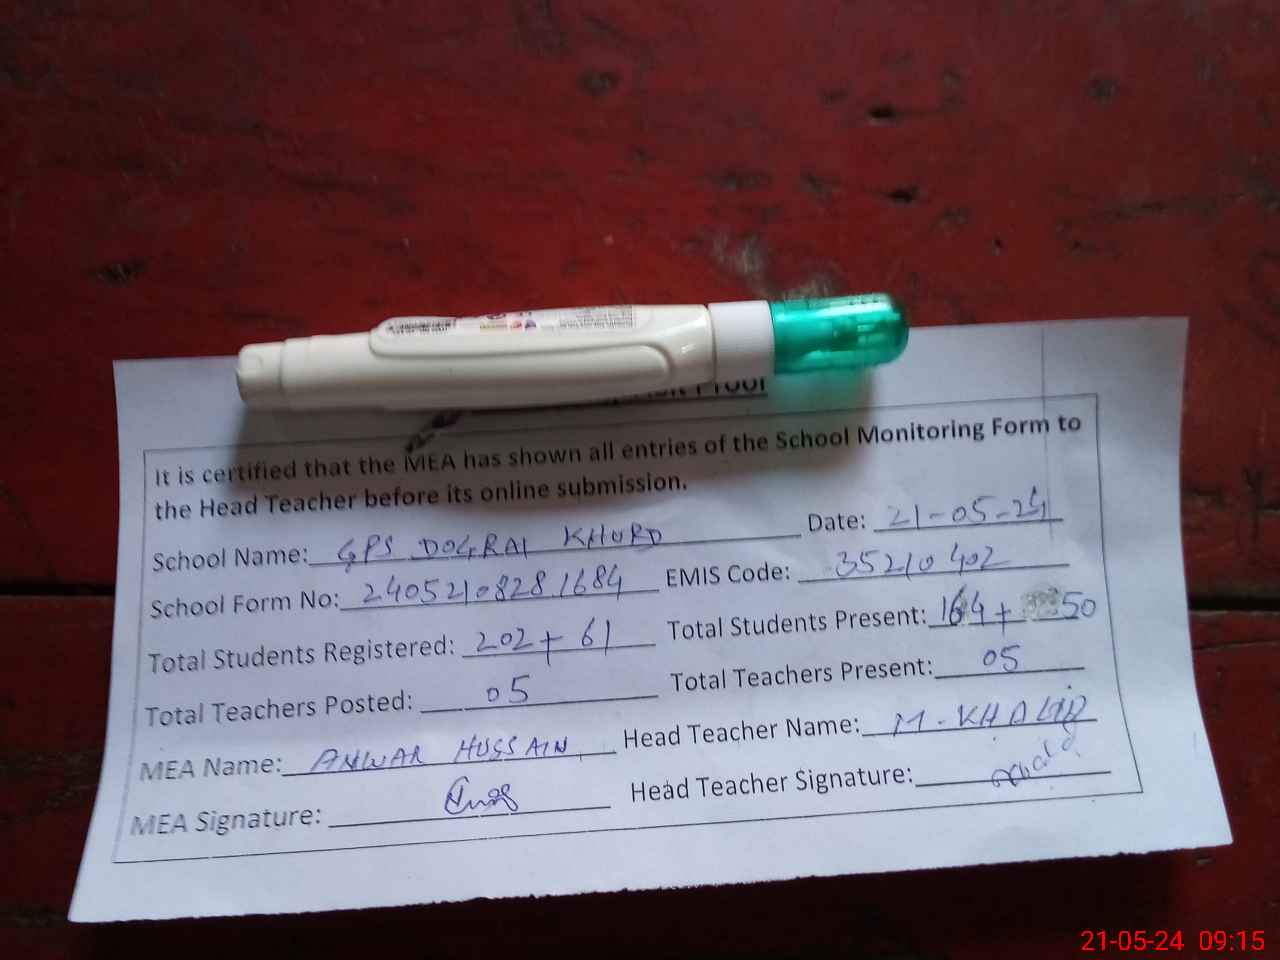 Proof
It is certified that the MEA has shown all entries of the School Monitoring Form to
the Head Teacher before its online submission.
School Name: GPS DOGRAI KHURD Date: 21-05-24
School Form No: 24052108281684 EMIS Code: 35210402
Total Students Registered: 202 + 61 Total Students Present: 164 + 50
Total Teachers Posted: 05 Total Teachers Present: 05
MEA Name: ANWAR HUSSAIN Head Teacher Name: M-KHALID
MEA Signature: Head Teacher Signature:
21-05-24 09:15